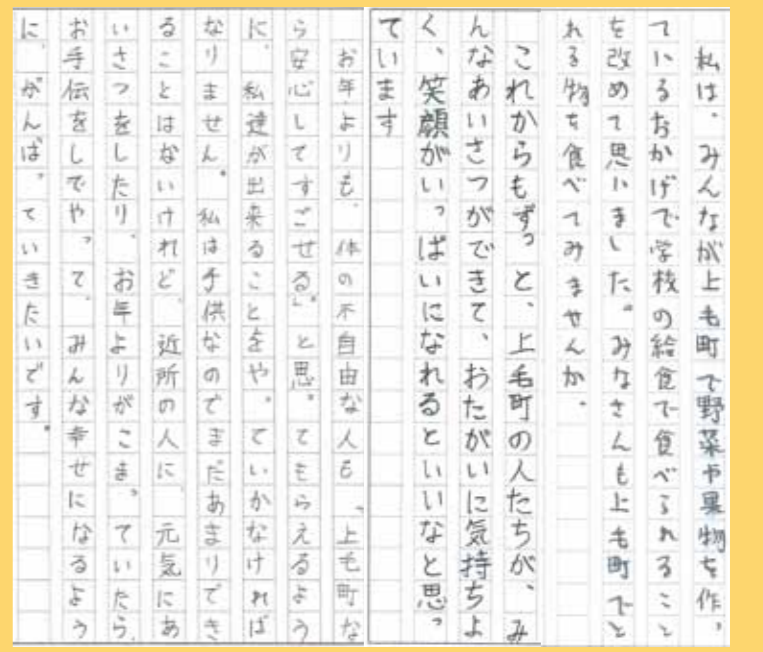 私は、みんなが上毛町で野菜や果物を作っ
ているおかげで学校の給食で食べられること
を改めて思いました。みなさんも上毛町でと
れる物を食べてみませんか。
これからもずっと、上毛町の人たちが、み
んなあいさつができて、おたがいに気持ちよ
く、笑顔がいっぱいになれるといいなと思っ
ています
お年よりも、体の不自由な人も、「上毛町な
ら安心してすごせる。」と思ってもらえるよう
に、私達が出来ることをやっていかなければ
なりません。私は子供なのでまだあまりでき
ることはないけれど、近所の人に、元気にあ
いさつをしたり、お年よりがこまっていたら、
お手伝をしでやって、みんな幸せになるよう
に、がんばっていきたいです。